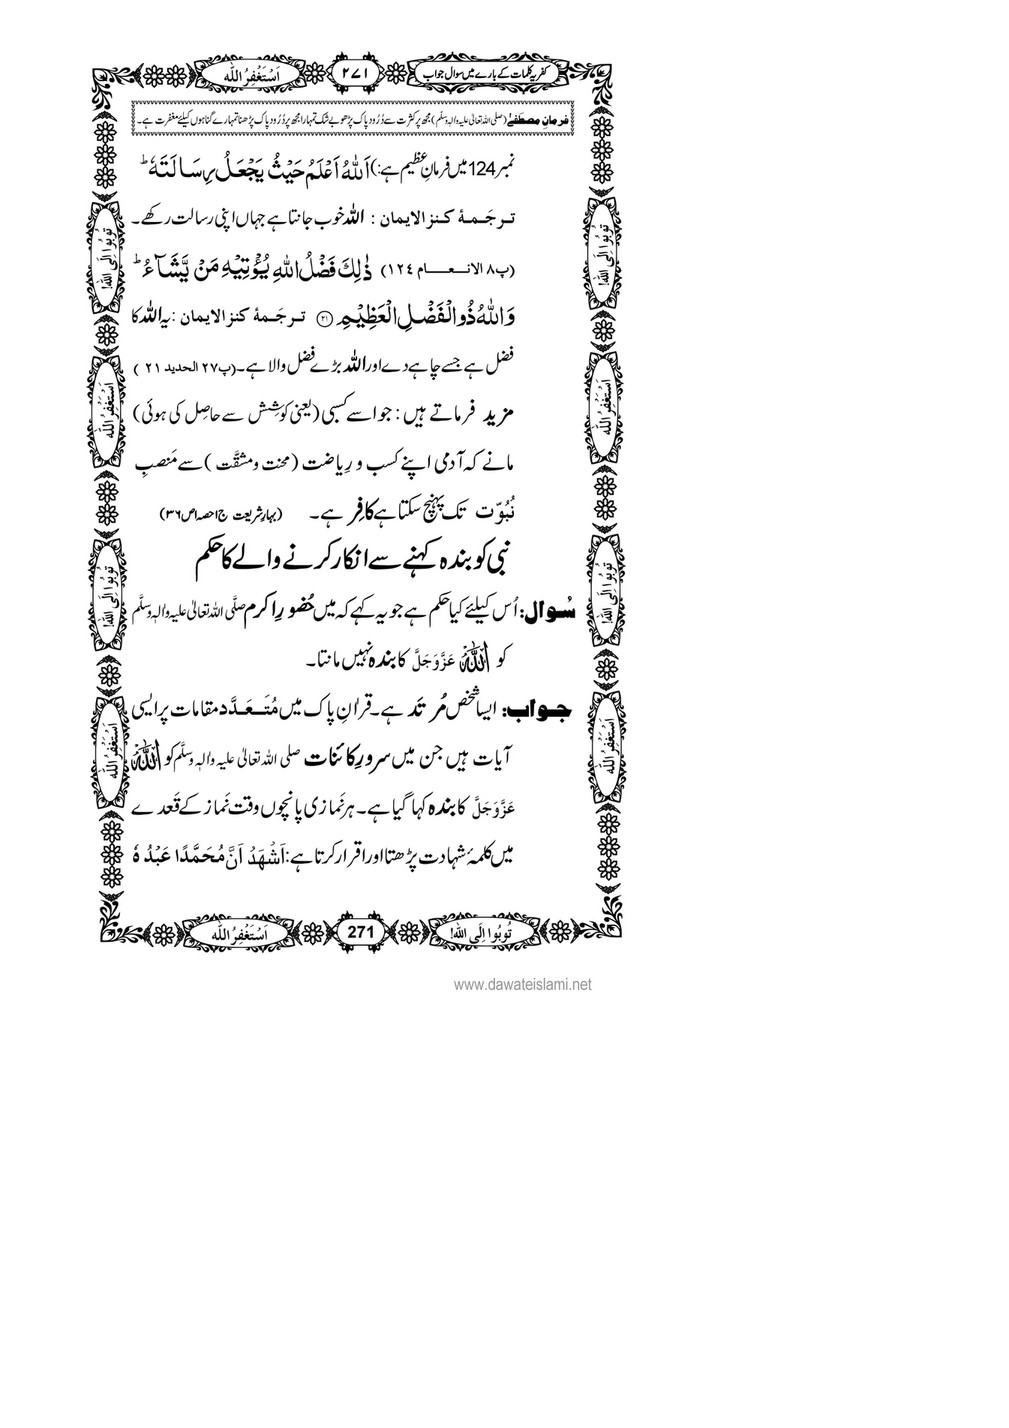 کفریہ کلمات کے بارے میں سوال جواب
۲۷۱
اَسْتَغْفِرُ اللّٰه
فرمانِ مصطفےٰ (صلی اللہ تعالیٰ علیہ والہ وسلم) مجھ پر کثرت سے دُرُود پاک پڑھو بے شک تمہارا مجھ پر دُرُود پاک پڑھنا تمہارے گناہوں کیلئے مغفرت ہے۔
نمبر 124 میں فرمانِ عظیم ہے:) اَللّٰهُ اَعْلَمُ حَیْثُ یَجْعَلُ رِسَالَتَهٗ ؕ
تـرجَـمـۂ کنـز الایمان : اللہ خوب جانتا ہے جہاں اپنی رسالت رکھے۔
(پ۸ الانـعـام ۱۲۴) ذٰلِكَ فَضْلُ اللّٰهِ یُؤْتِیْهِ مَنْ یَّشَآءُ ؕ
وَ اللّٰهُ ذُو الْفَضْلِ الْعَظِیْمِ ﴿۲۱﴾ تـرجَـمـۂ کنز الایمان : یہ اللہ کا
فضل ہے جسے چاہے دے اور اللہ بڑے فضل والا ہے۔ (پ۲۷ الحدید ۲۱ )
مزید فرماتے ہیں : جو اسے کسبی (یعنی کوشِش سے حاصِل کی ہوئی)
مانے کہ آدمی اپنے کسب و رِیاضت (محنت و مشقَّت ) سے مَنصبِ
نُبُوّت تک پہنچ سکتا ہے کافِر ہے۔ (بہارِ شریعت ج۱ حصہ ا ص۳۶)
نبی کو بندہ کہنے سے انکار کرنے والے کا حکم
سُوال: اُس کیلئے کیا حکم ہے جو یہ کہے کہ میں حُضورِ اکرم صلَّی اللہ تعالیٰ علیہ والہٖ وسلَّم
کو اللہ عَزَّوَجَلَّ کا بندہ نہیں مانتا۔
جواب: ایسا شخص مُرتَد ہے۔ قراٰنِ پاک میں مُتَـعَـدَّد مقامات پر ایسی
آیات ہیں جن میں سرورِ کائنات صلی اللہ تعالیٰ علیہ والہٖ وسلَّم کو اللہ
عَزَّوَجَلَّ کا بندہ کہا گیا ہے۔ ہر نَمازی پانچوں وقت نَماز کے قَعدے
میں کلمۂ شہادت پڑھتا اور اقرار کرتا ہے: اَشْهَدُ اَنَّ مُحَمَّدًا عَبْدُهٗ
تُوبُوا اِلَی اللّٰه!
271
اَسْتَغْفِرُ اللّٰه
تُوبُوا اِلَی اللّٰه!
اَسْتَغْفِرُ اللّٰه
تُوبُوا اِلَی اللّٰه!
اَسْتَغْفِرُ اللّٰه
تُوبُوا اِلَی اللّٰه!
اَسْتَغْفِرُ اللّٰه
تُوبُوا اِلَی اللّٰه!
اَسْتَغْفِرُ اللّٰه
www.dawateislami.net